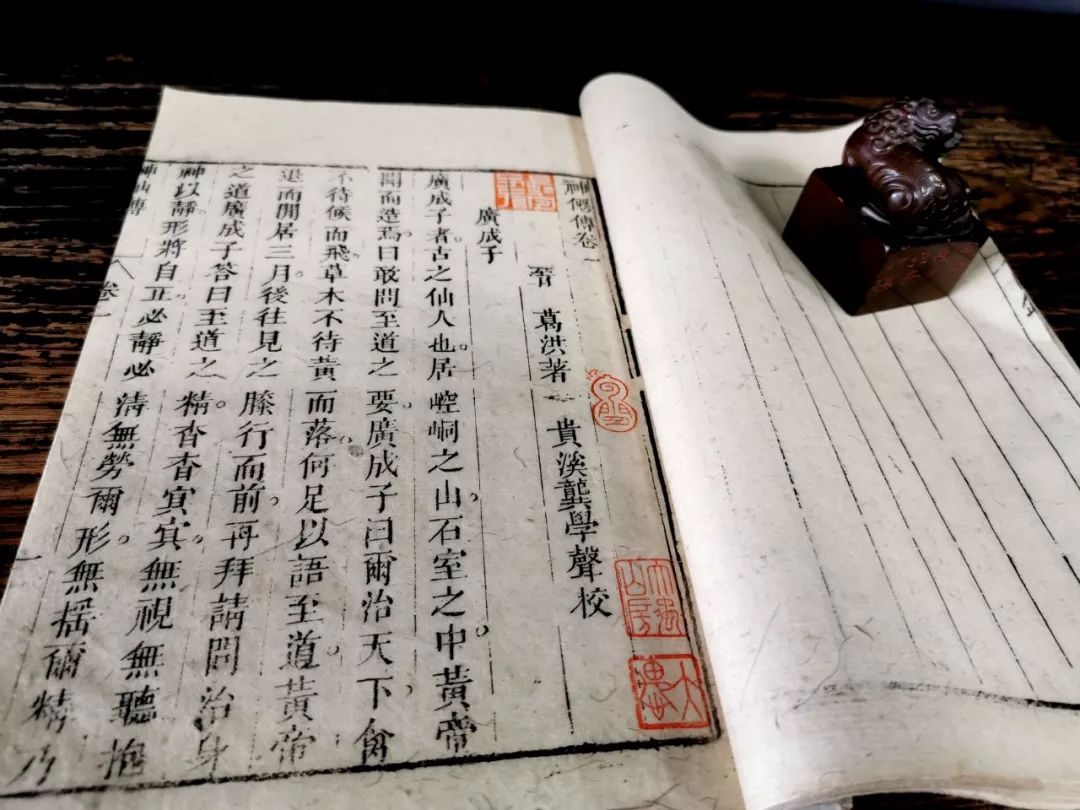 神僊傳卷一
晉 葛洪著 貴溪龔學聲校
廣成子
廣成子者。古之仙人也。居崆峒之山，石室之中。黃帝
聞而造焉。曰敢問至道之要。廣成子曰爾治天下，禽
不待候而飛。草木不待黃而落。何足以語至道。黃帝
退而閒居三月。後往見之。膝行而前。再拜請問治身
之道廣成子答曰至道之精。杳杳㝠㝠。無視無聽抱
神以靜。形將自正。必靜必清。無勞爾形。無搖爾精乃
神仙傳 卷一 一